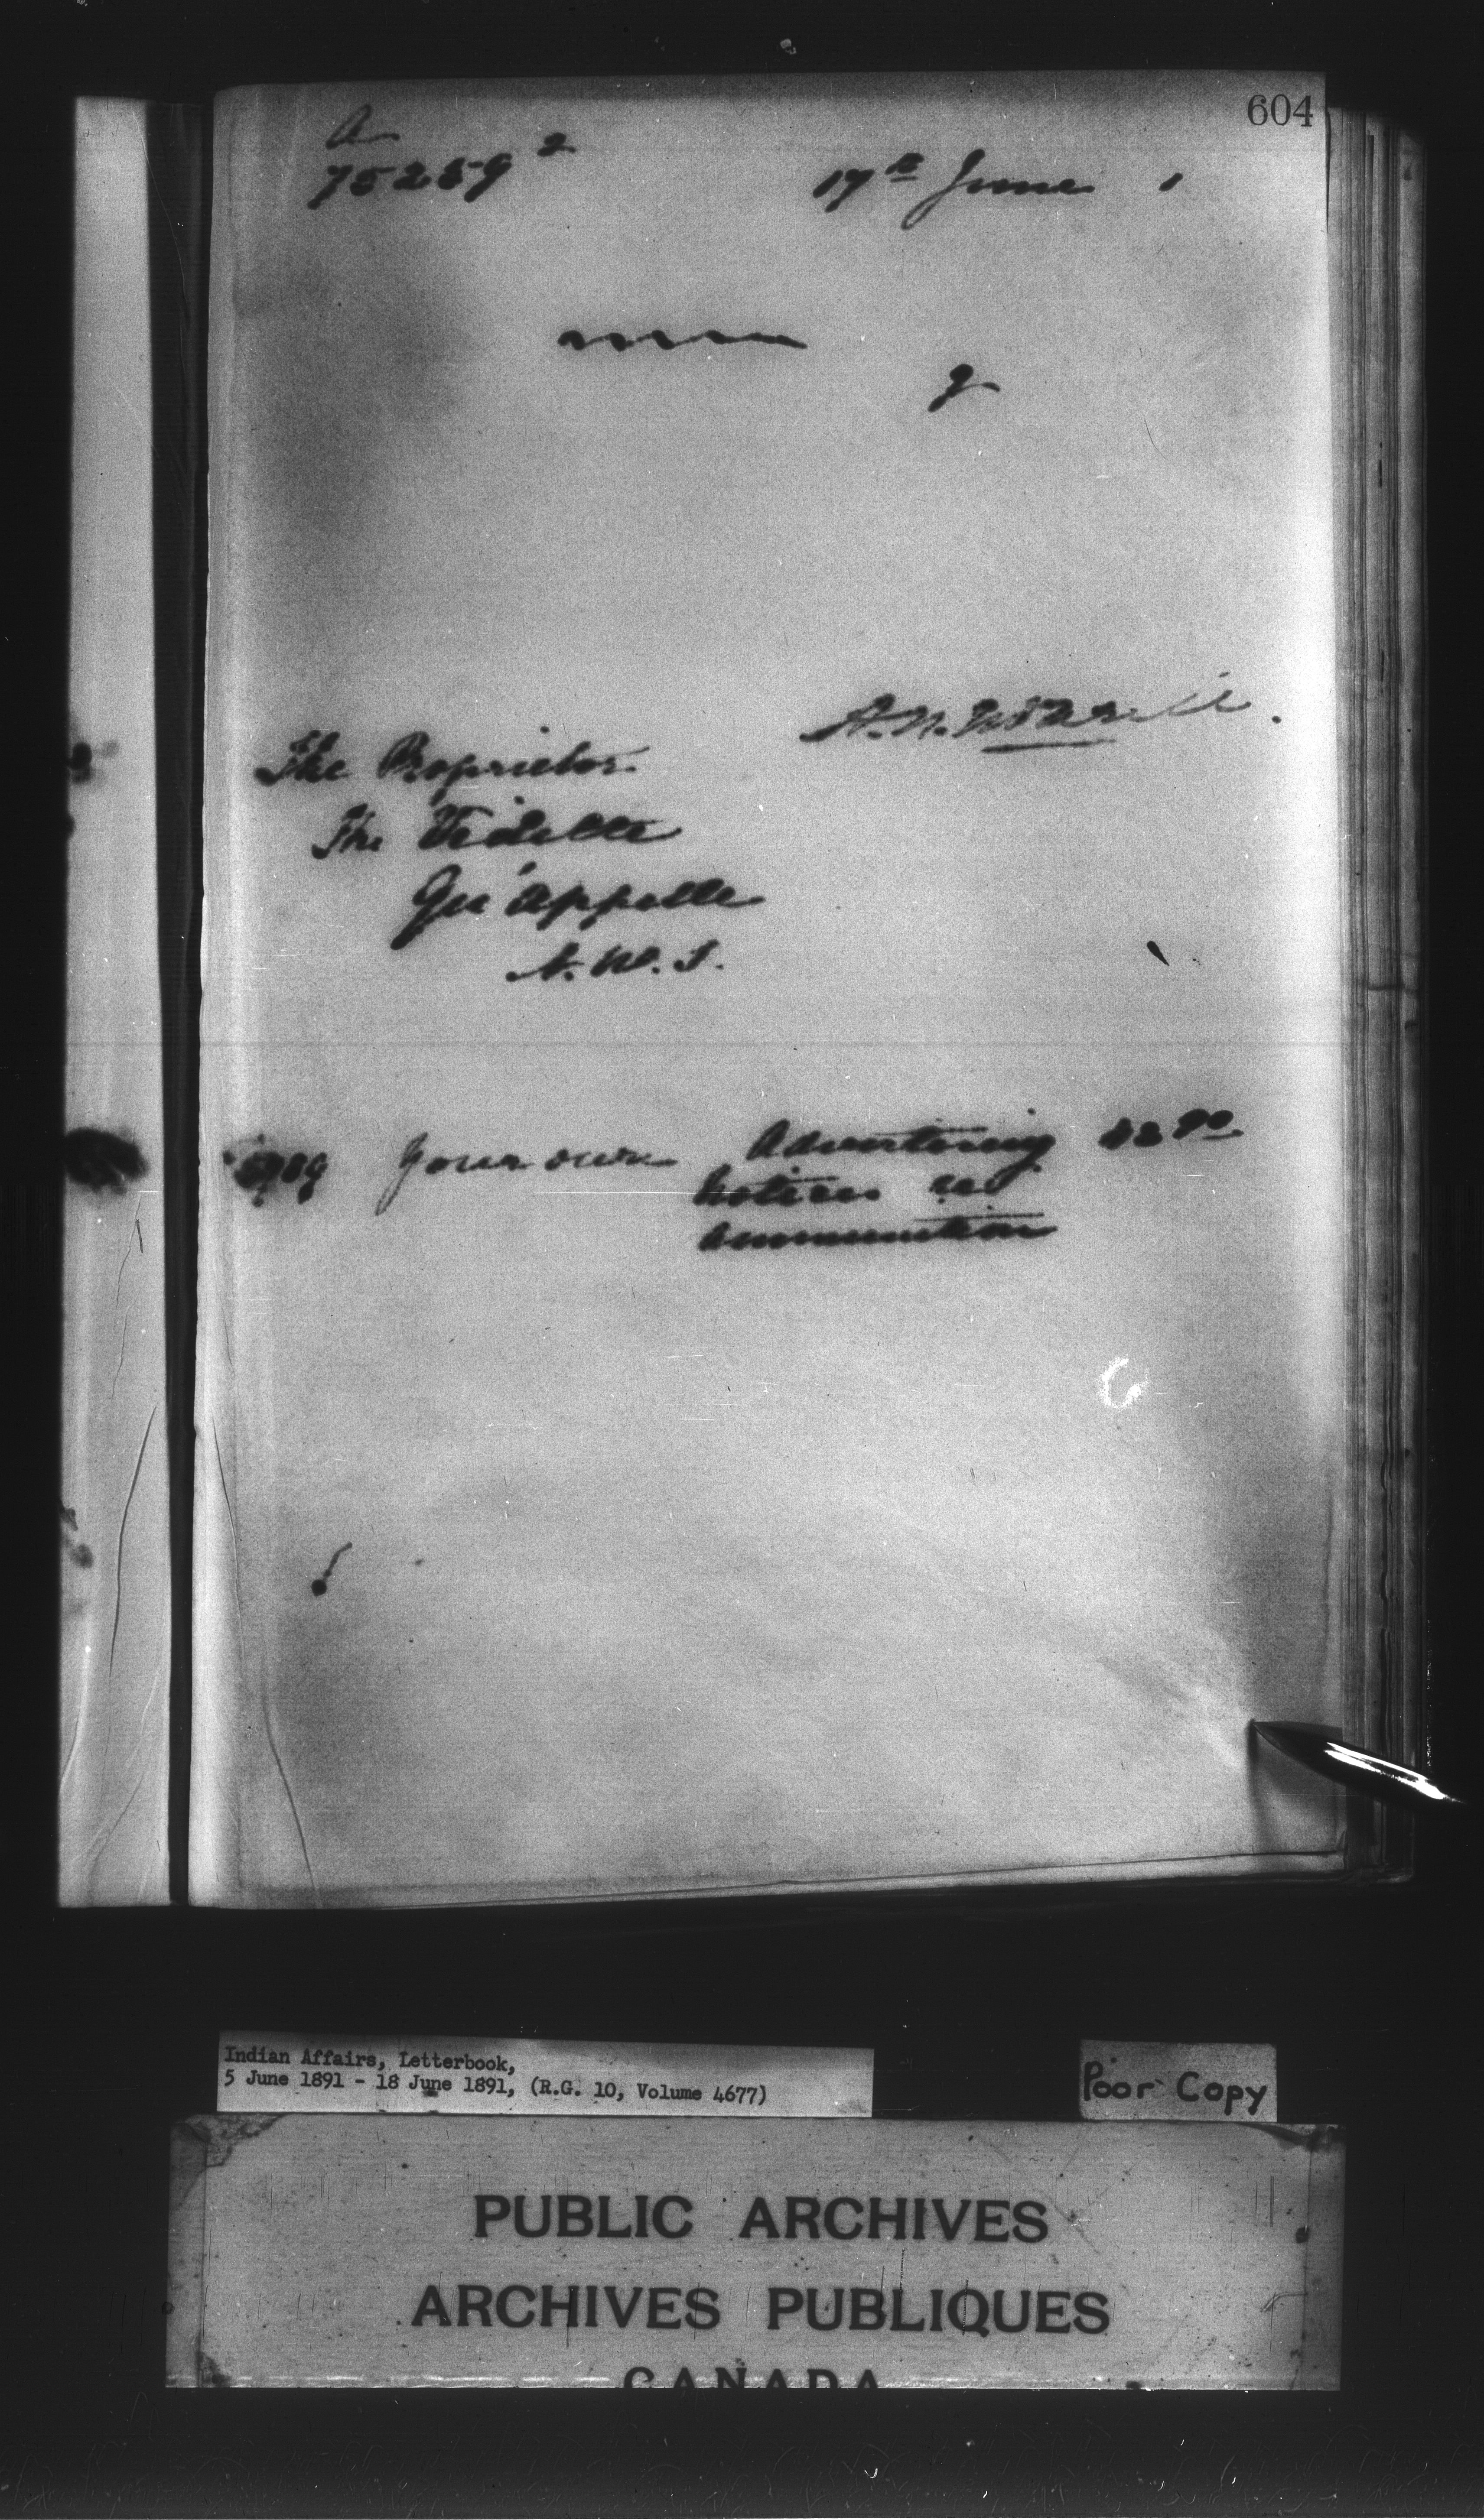 604
A
75259 2
17th June 1
The Proprietor
The Vidette
Qu'Appelle
N. W. T.
Your own Advertising
notices re
ammunition
Indian Affairs, Letterbook,
5 June 1891 - 18 June 1891, (R.G. 10, Volume 4677)
Poor Copy
PUBLIC ARCHIVES
ARCHIVES PUBLIQUES
CANADA